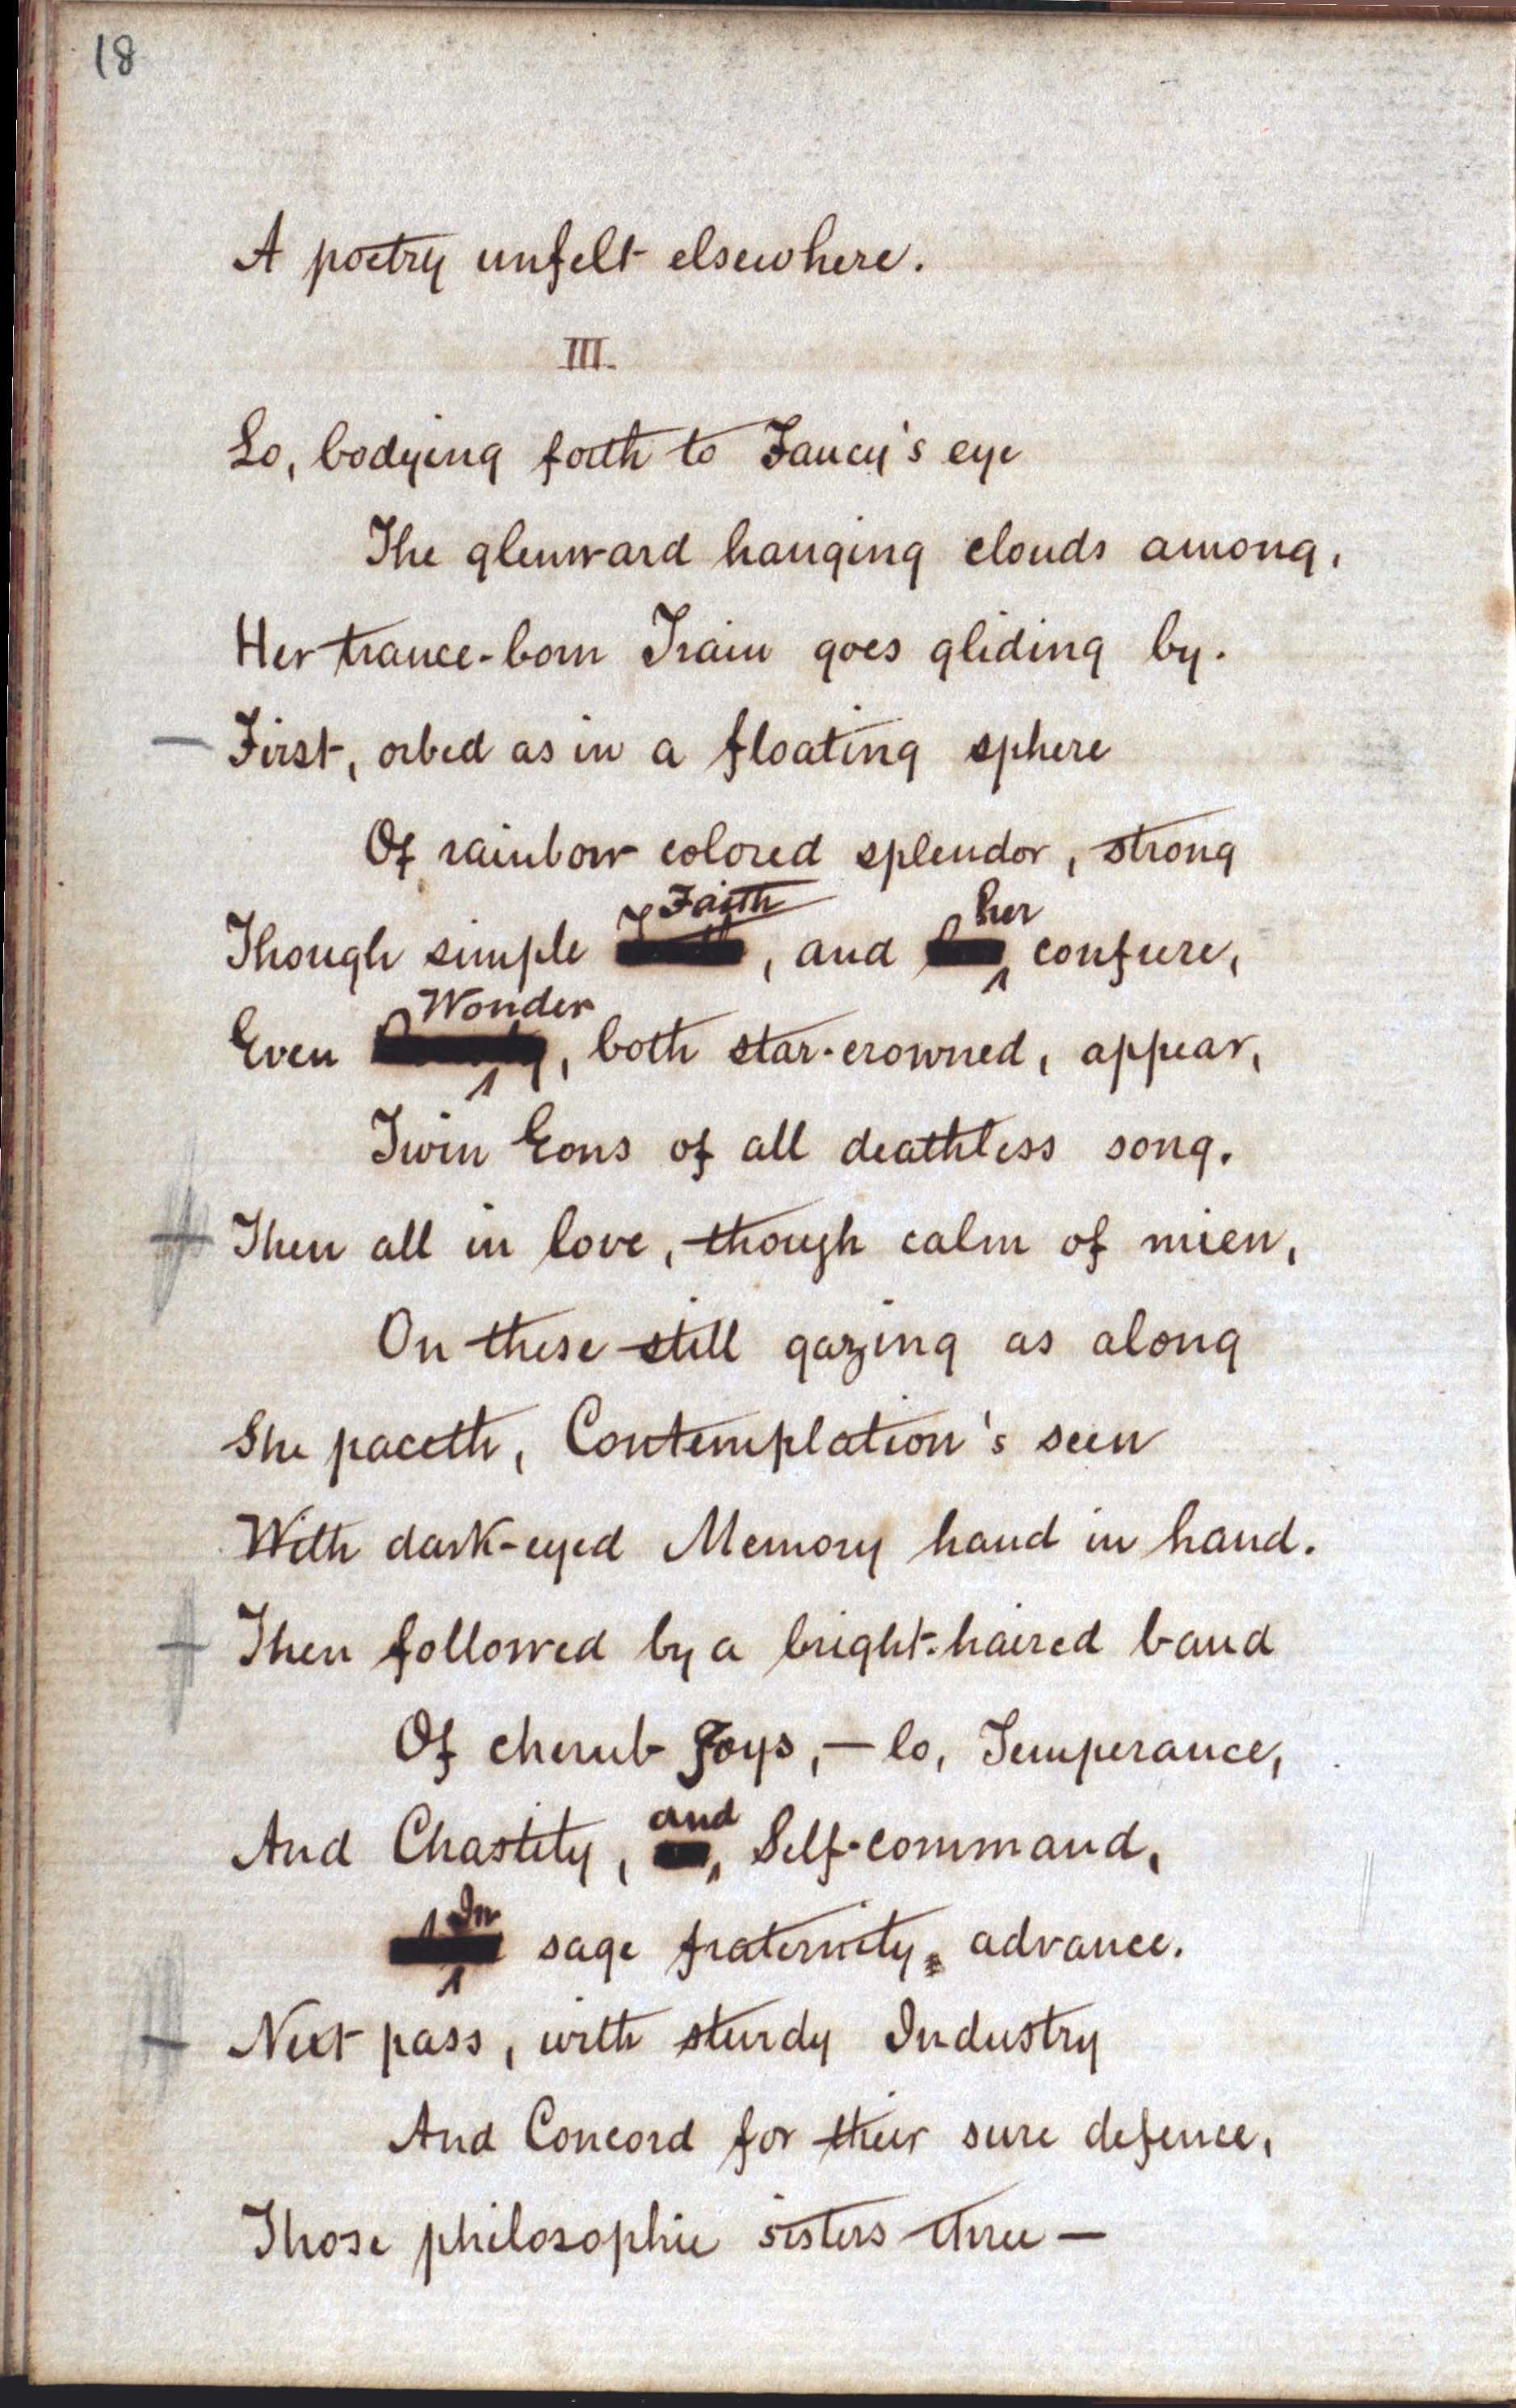 18
A poetry unfelt elsewhere.
III.
Lo, bodying forth to Fancy's eye
The glenward hanging clouds among,
Her trance-born Train goes gliding by.
First, orbed as in a floating sphere
Of rainbow colored splendor, strong
Though simple Faith, and her confrere,
Even Wonder, both star-crowned, appear,
Twin Eons of all deathless song.
Then all in love, though calm of mien,
On these still gazing as along
She paceth, Contemplation's seen
With dark-eyed Memory hand in hand.
Then followed by a bright-haired band
Of cherub Joys,— lo, Temperance,
And Chastity, and Self-command,
In sage fraternity, advance.
Next pass, with sturdy Industry
And Concord for their sure defence,
Those philosophic sisters three —